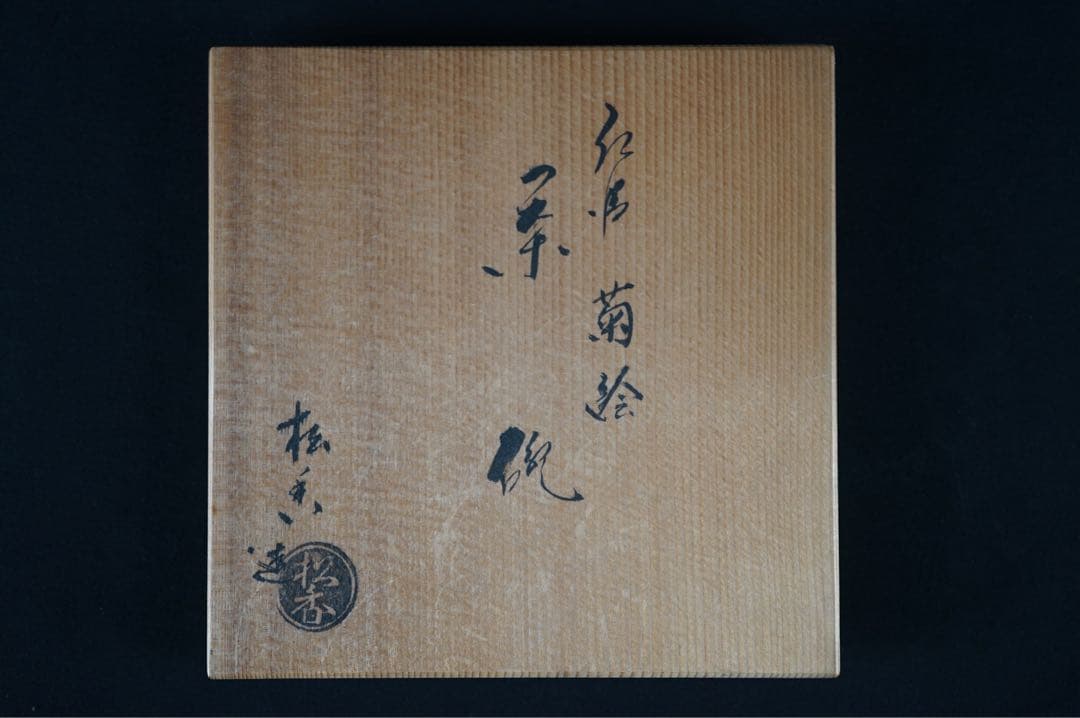 仁清 菊絵
茶碗
松香造
松香